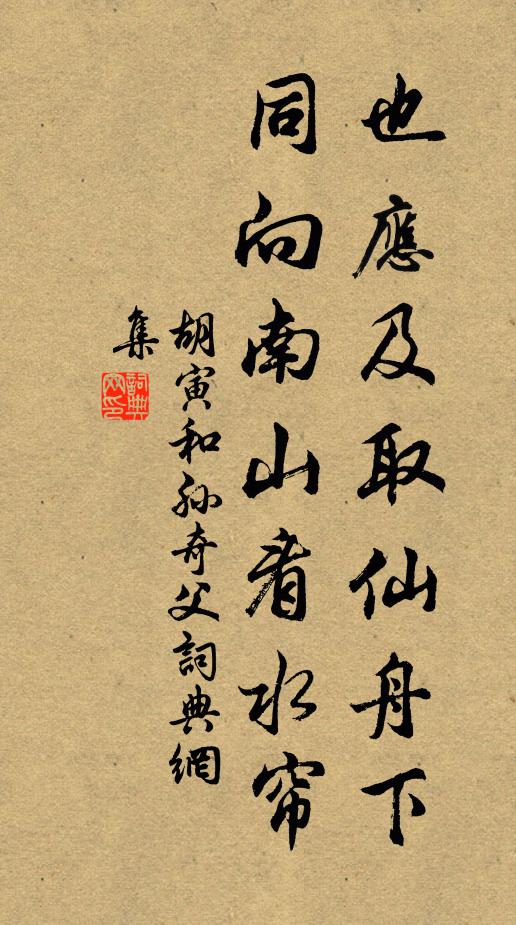 也應及取仙舟下
同向南山看水帘
胡寅和孙奇父詞典網
集
詞典網印